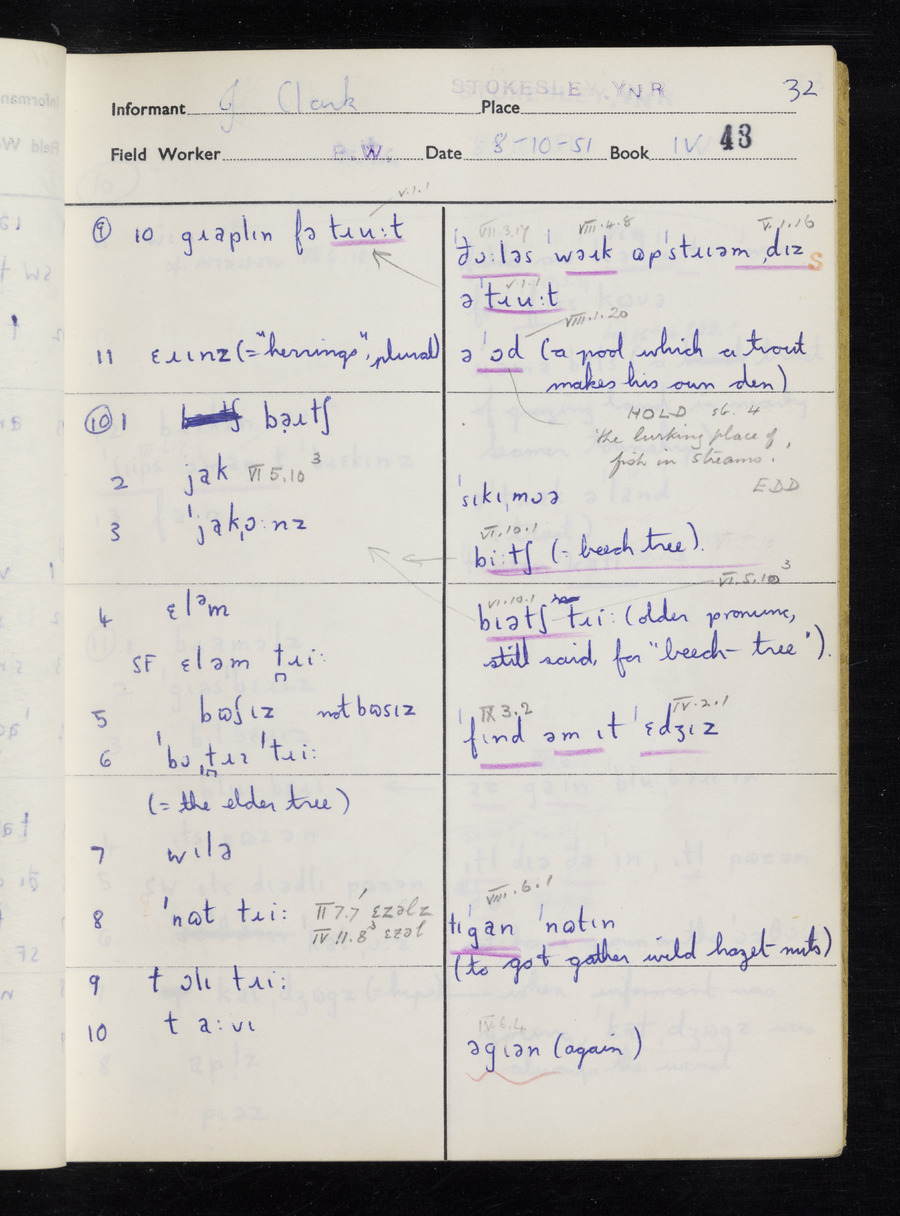 STOKESLEY YNR
32
Informant J Clark Place
Field Worker P. W. Date 8-10-51 Book IV 43
v.1.1
⑨ 10 gɹaplɪn fə tɹu:t
VII.3.17 VIII.4.8 V.1.16
wəɪk ɷpˈstɹɪəm ˌdɪz S
v.1.1
ə ˈtɹu:t
VIII.1.20
11 ɛɹɪnz (= "herrings", plural)
ə ˈɔd (a pool which a trout
makes his own den)
HOLD sb. 4
the lurking place of
fish in streams.
EDD
⑩ 1 bəɪtʃ
2 jak VI 5.10 3
3 ˈjakˌɔ:nz
ˈsɪkɪˌmɔə
VI.10.1
bi:tʃ (= beech tree).
VI.5.10 3
4 ɛləm
VI.10.1
bɪətʃ tɹi: (older pronunc,
still said, for "beech-tree").
SF ɛləm tɹi:
5 bɷʃɪz not bɷsɪz
6 ˈbɔˌtɹɪ ˈtɹi:
(= the elder tree)
IX 3.2 IV.2.1
ˈfɪnd əm ɪt ˈɛdʒɪz
7 wɪlə
8 ˈnɷt tɹi: II 7.7 ɛzəlz
IV 11.8 3 ɛzəl
VIII.6.1
tɪˈgan ˈnɷtɪn
(to go gather wild hazel-nuts)
9 t ɔlɪ tɹi:
10 t a:vɪ
IV.6.4
əgɪən (again)